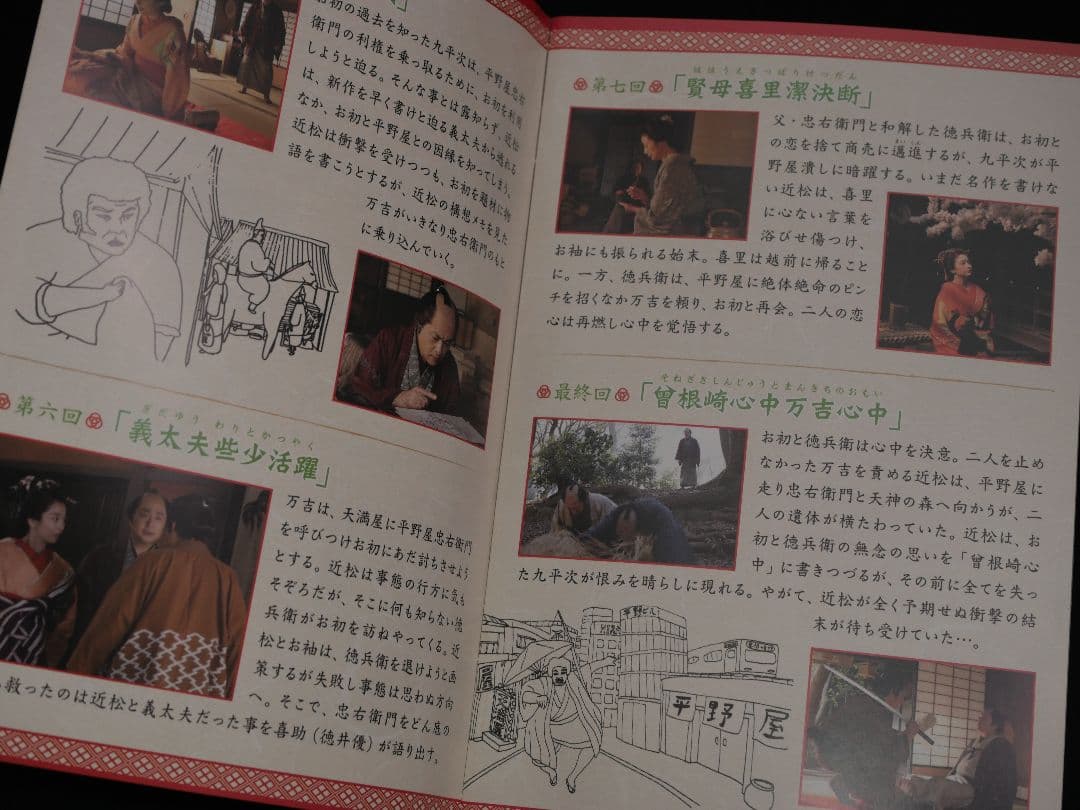 お初の過去を知った九平次は、平野屋忠右
衛門の利権を乗っ取るために、お初を利用
しようと迫る。そんな事とは露知らず、近松
は、新作を早く書けと迫る義太夫から逃れる
なか、お初と平野屋との因縁を知ってしまう。
近松は衝撃を受けつつも、お初を題材に物
語を書こうとするが、近松の構想メモを見た
万吉がいきなり忠右衛門のもと
に乗り込んでいく。
第六回「義太夫些少活躍」
ぎだゆう わりとかつやく
万吉は、天満屋に平野屋忠右衛門
を呼びつけお初にあだ討ちさせよう
とする。近松は事態の行方に気も
そぞろだが、そこに何も知らない徳
兵衛がお初を訪ねやってくる。近
松とお袖は、徳兵衛を退けようと画
策するが失敗し事態は思わぬ方向
へ。そこで、忠右衛門をどん底の
救ったのは近松と義太夫だった事を喜助(徳井優)が語り出す。
ははうえきっぱりけつだん
第七回「賢母喜里潔決断」
父・忠右衛門と和解した徳兵衛は、お初と
の恋を捨て商売に邁進するが、九平次が平
まいしん
野屋潰しに暗躍する。いまだ名作を書けな
い近松は、喜里
に心ない言葉を
浴びせ傷つけ、
お袖にも振られる始末。喜里は越前に帰ること
に。一方、徳兵衛は、平野屋に絶体絶命のピン
チを招くなか万吉を頼り、お初と再会。二人の恋
心は再燃し心中を覚悟する。
そねざきしんじゅうとまんきちのおもい
最終回「曾根崎心中万吉心中」
お初と徳兵衛は心中を決意。二人を止め
なかった万吉を責める近松は、平野屋に
走り忠右衛門と天神の森へ向かうが、二
人の遺体が横たわっていた。近松は、お
初と徳兵衛の無念の思いを「曾根崎心
中」に書きつづるが、その前に全てを失っ
た九平次が恨みを晴らしに現れる。やがて、近松が全く予期せぬ衝撃の結
末が待ち受けていた…。
平野ビル
平野屋